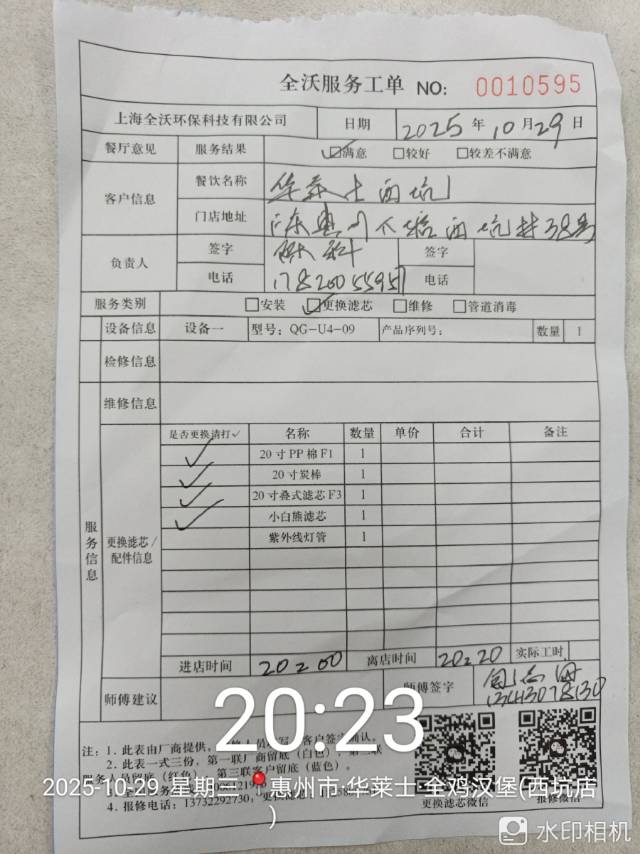 全沃服务工单 NO: 0010595
上海全沃环保科技有限公司 日期 2025年10月29日
餐厅意见 服务结果 ☑满意 □较好 □较差不满意
客户信息 餐饮名称 华莱士西坑
门店地址 西坑村38号
负责人 签字 签字
电话 17820055951 电话
服务类别 □安装 ☑更换滤芯 □维修 □管道消毒
设备信息 设备一 型号: QG-U4-09 产品序列号: 数量 1
检修信息
维修信息
服务信息
更换滤芯/配件信息
是否更换请打✓ 名称 数量 单价 合计 备注
✓ 20寸PP棉F1 1
✓ 20寸炭棒 1
✓ 20寸叠式滤芯F3 1
✓ 小白熊滤芯 1
紫外线灯管 1
进店时间 20:00 离店时间 20:20 实际工时
师傅建议 师傅签字
13643078130
20:23
注: 1. 此表由厂商提供, 客户签字确认。
2. 此表一式三份, 第一联厂商留底(白色)
服务人员留底(红色) 第三联客户留底(蓝色)。
4. 报修电话: 13732292730,
更换滤芯微信 报修微信
2025-10-29 星期三 惠州市·华莱士·全鸡汉堡(西坑店)
水印相机